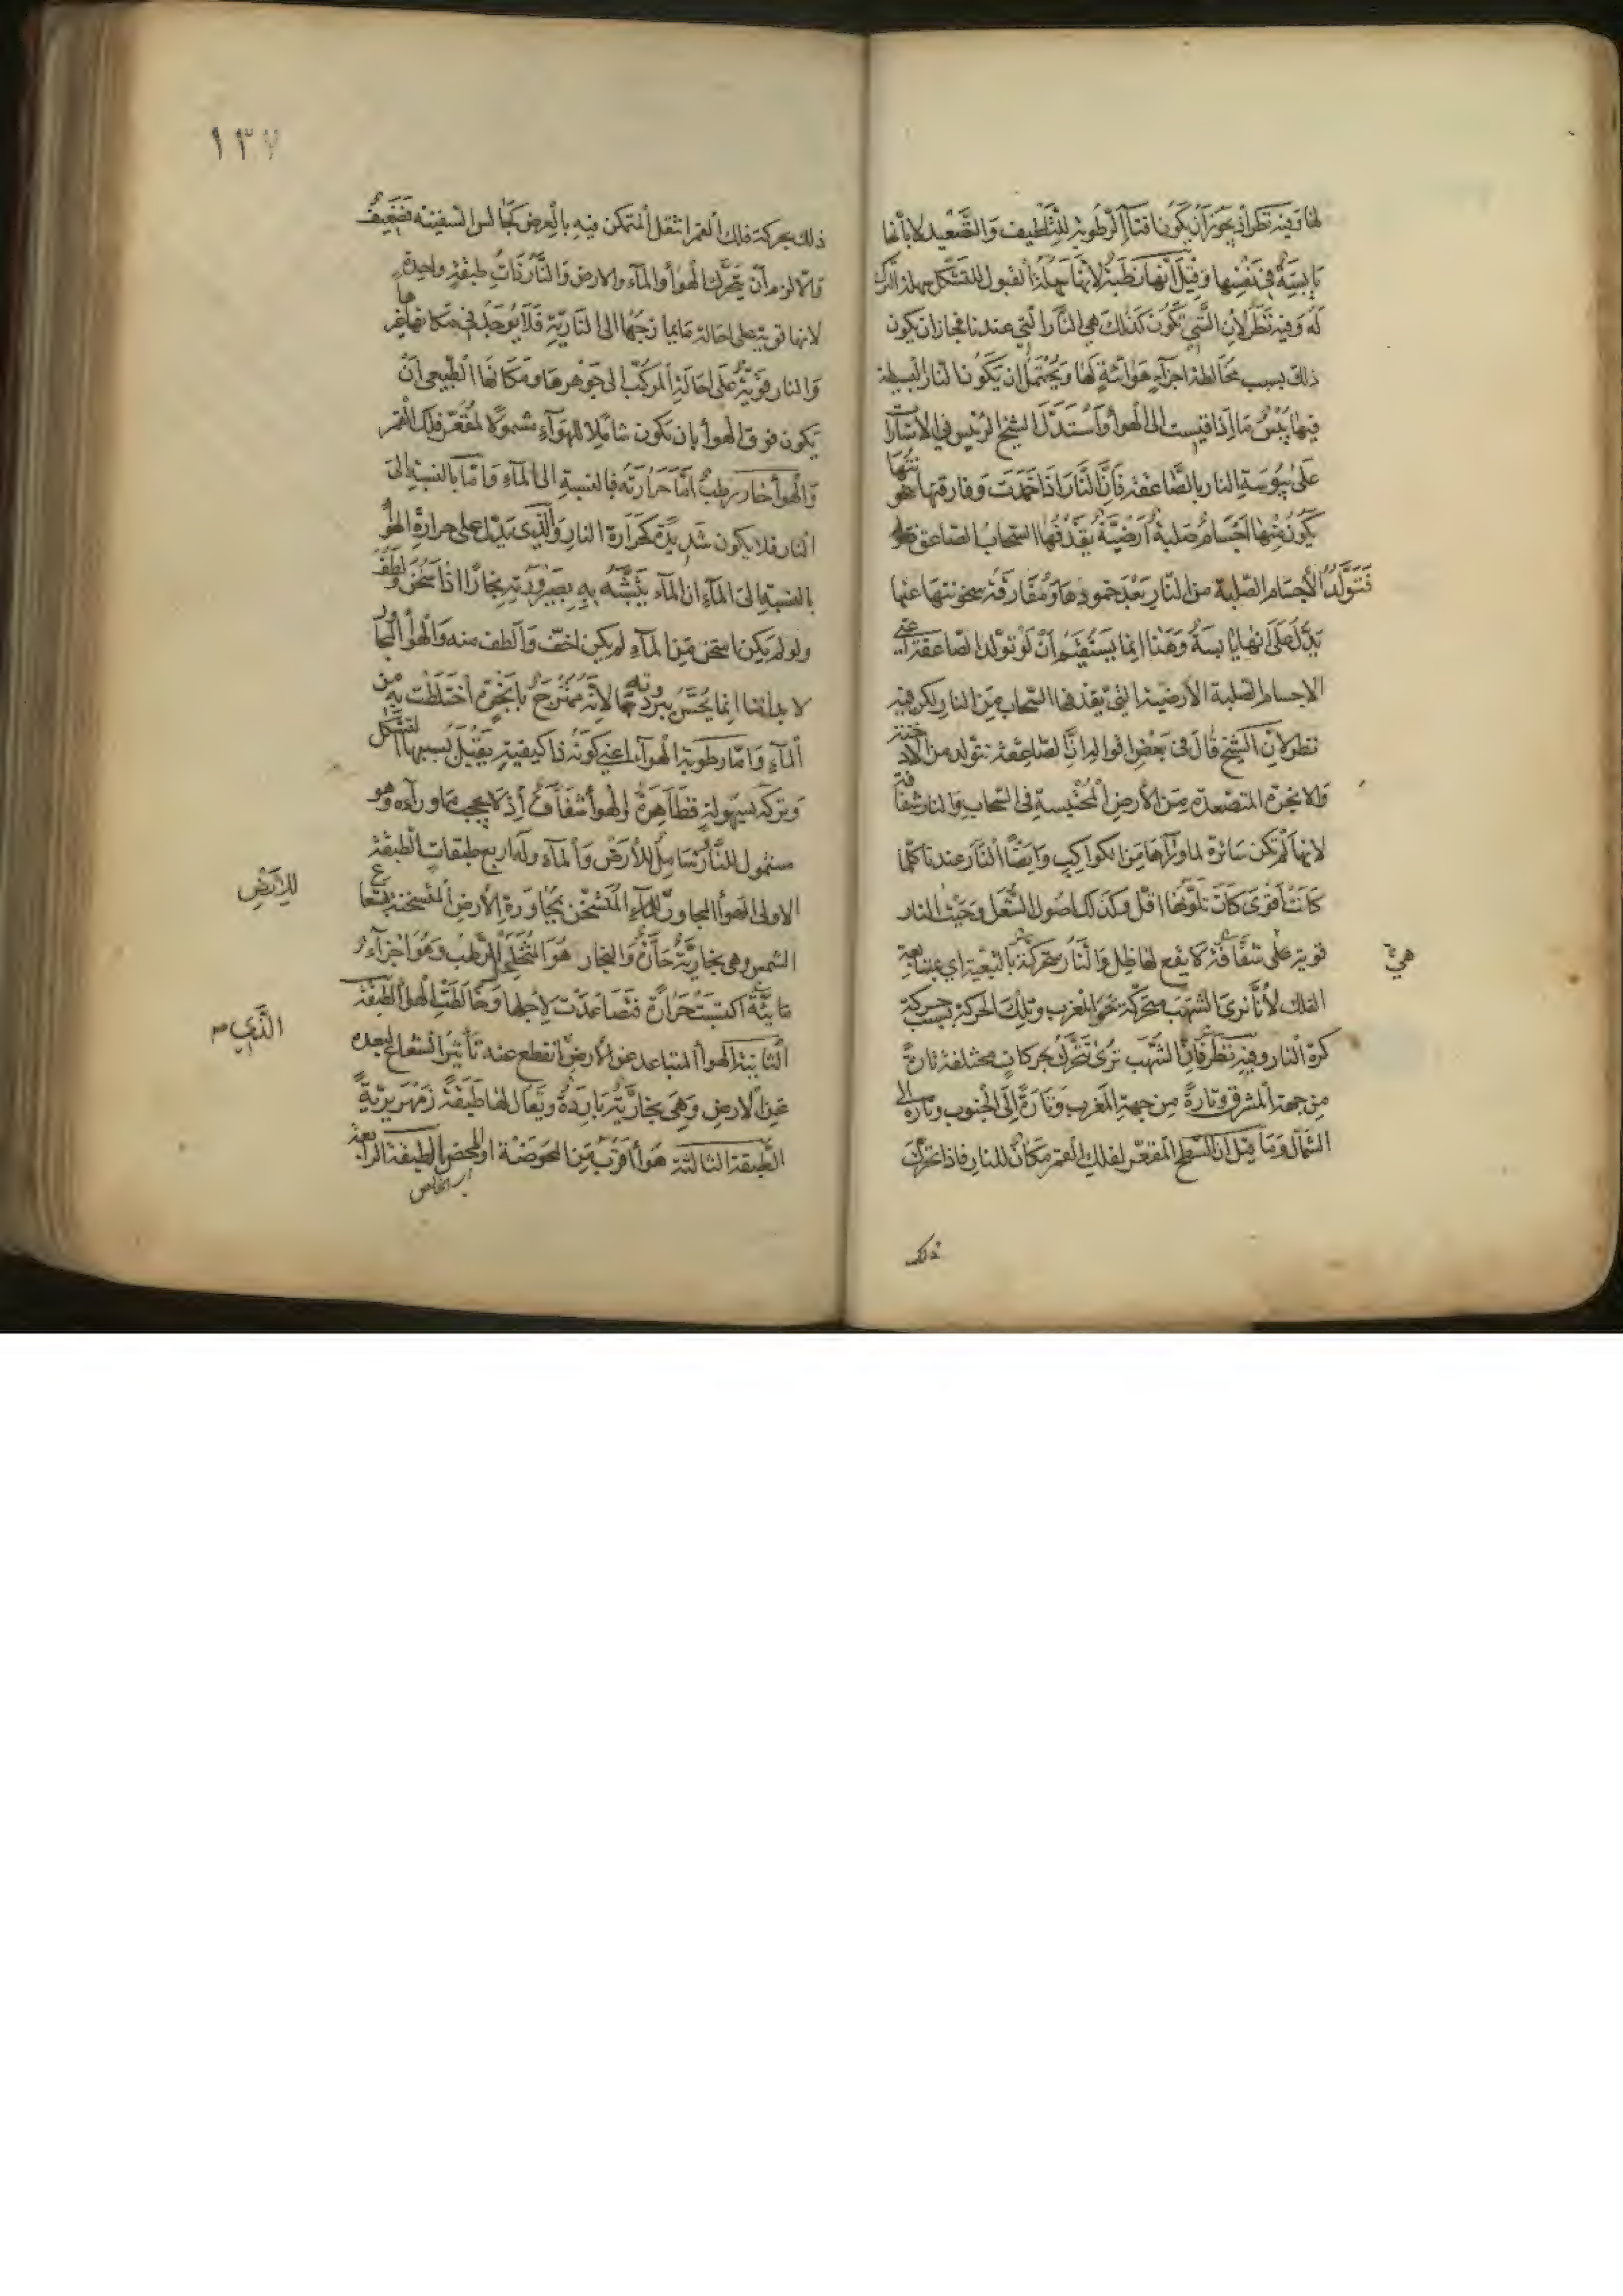 لها وفيه نظر اذ يجوز ان يكون افناء الرطوبة للتلطيف والتصعيد لا بانها
يابسة في نفسها وقيل انها رطبة لانها سهلة القبول للتشكل سهلة الترك
له وفيه نظر لان الشي تكون كذلك هي النار التي عندنا فجاز ان يكون
ذلك بسبب مخالطة اجزاء هوائية لها ويحتمل ان يكون النار البسيطة
فيها يبس ما اذا قيست الى الهواء واستدل الشيخ الرئيس في الاشارات
على يبوسة النار بالصاعقة فان النار اذا خمدت وفارقتها سخونتها
يكون منها اجسام صلبة ارضية يقذفها السحاب الصاعق
فتولد الاجسام الصلبة من النار بعد خمودها ومفارقة سخونتها عنها
يدل على انها يابسة وهذا انما يستقيم ان لو تولد الصاعقة اعني
الاجسام الصلبة الارضية التي يقذفها السحاب من النار لكن فيه
نظر لان الشيخ قال في بعض اقواله ان الصاعقة تتولد من الادخنة
والابخرة المتصعدة من الارض المحتبسة في السحاب والنار شفافة
لانها لم تكن ساترة لما وراءها من الكواكب وايضا النار عندنا كلما
كانت اقوى كان تلونها اقل وكذلك اصول الشعل وحيث النار
هي
قوية على شفافة لا يقع لها ظل والنار متحركة بالتبعية اي بمتابعة
الفلك لانا نرى الشهب متحركة نحو المغرب وتلك الحركة بسبب حركة
كرة النار وفيه نظر فان الشهب ترى تتحرك بحركات مختلفة تارة
من جهة المشرق وتارة من جهة المغرب وتارة الى الجنوب وتارة الى
الشمال وما قيل ان السطح المقعر لفلك القمر مكان للنار فاذا تحرك
ذلك
١٣٧
ذلك بحركة فلك القمر انتقل المتمكن فيه بالعرض كجالس السفينة فضعيف
والا لزم ان يتحرك الهواء والماء والارض والنار ذات طبقة واحدة
لانها قوية على احالة ما يمازجها الى النارية فلا يوجد في مكانها غيرها
والنار قوية على احالة المركب الى جوهرها ومكانها الطبيعي ان
يكون فوق الهواء بان تكون شاملا للهواء شمولا لمقعر فلك القمر
والهواء حار رطب اما حرارته فبالنسبة الى الماء واما بالنسبة الى
النار فلا يكون شديدة كحرارة النار والذي يدل على حرارة الهواء
بالنسبة الى الماء ان الماء يتشبه به بصيرورته بخارا اذا سخن ولطف
ولو لم يكن اسخن من الماء لم يكن اخف والطف منه والهواء المجاور
لابداننا انما يحس ببرودته لانه ممتزج بابخرة اختلطت به من
الماء واما رطوبة الهواء اعني كونه ذا كيفية يقبل بسببها التشكل
وتركه بسهولة فظاهرة والهواء شفاف اذ لا يحجب ما وراءه وهو
مشمول للنار شامل للارض والماء وله اربع طبقات الطبقة
للارض
الاولى الهواء المجاور للماء المتسخن بمجاورة الارض المتسخنة بشعاع
الشمس وهي بخارية حارة والبخار هو المتحلل الرطب وهو اجزاء
مائية اكتسبت حرارة فتصاعدت لاجلها وخالطت الهواء الطبقة
الذي
الثانية الهواء المتباعد عن الارض انقطع عنه تأثير الشعاع لبعده
عن الارض وهي بخارية باردة ويقال لها طبقة زمهريرية
الطبقة الثالثة هواء اقرب من المحوضة او المحض الطبقة الرابعة
اي الخالص